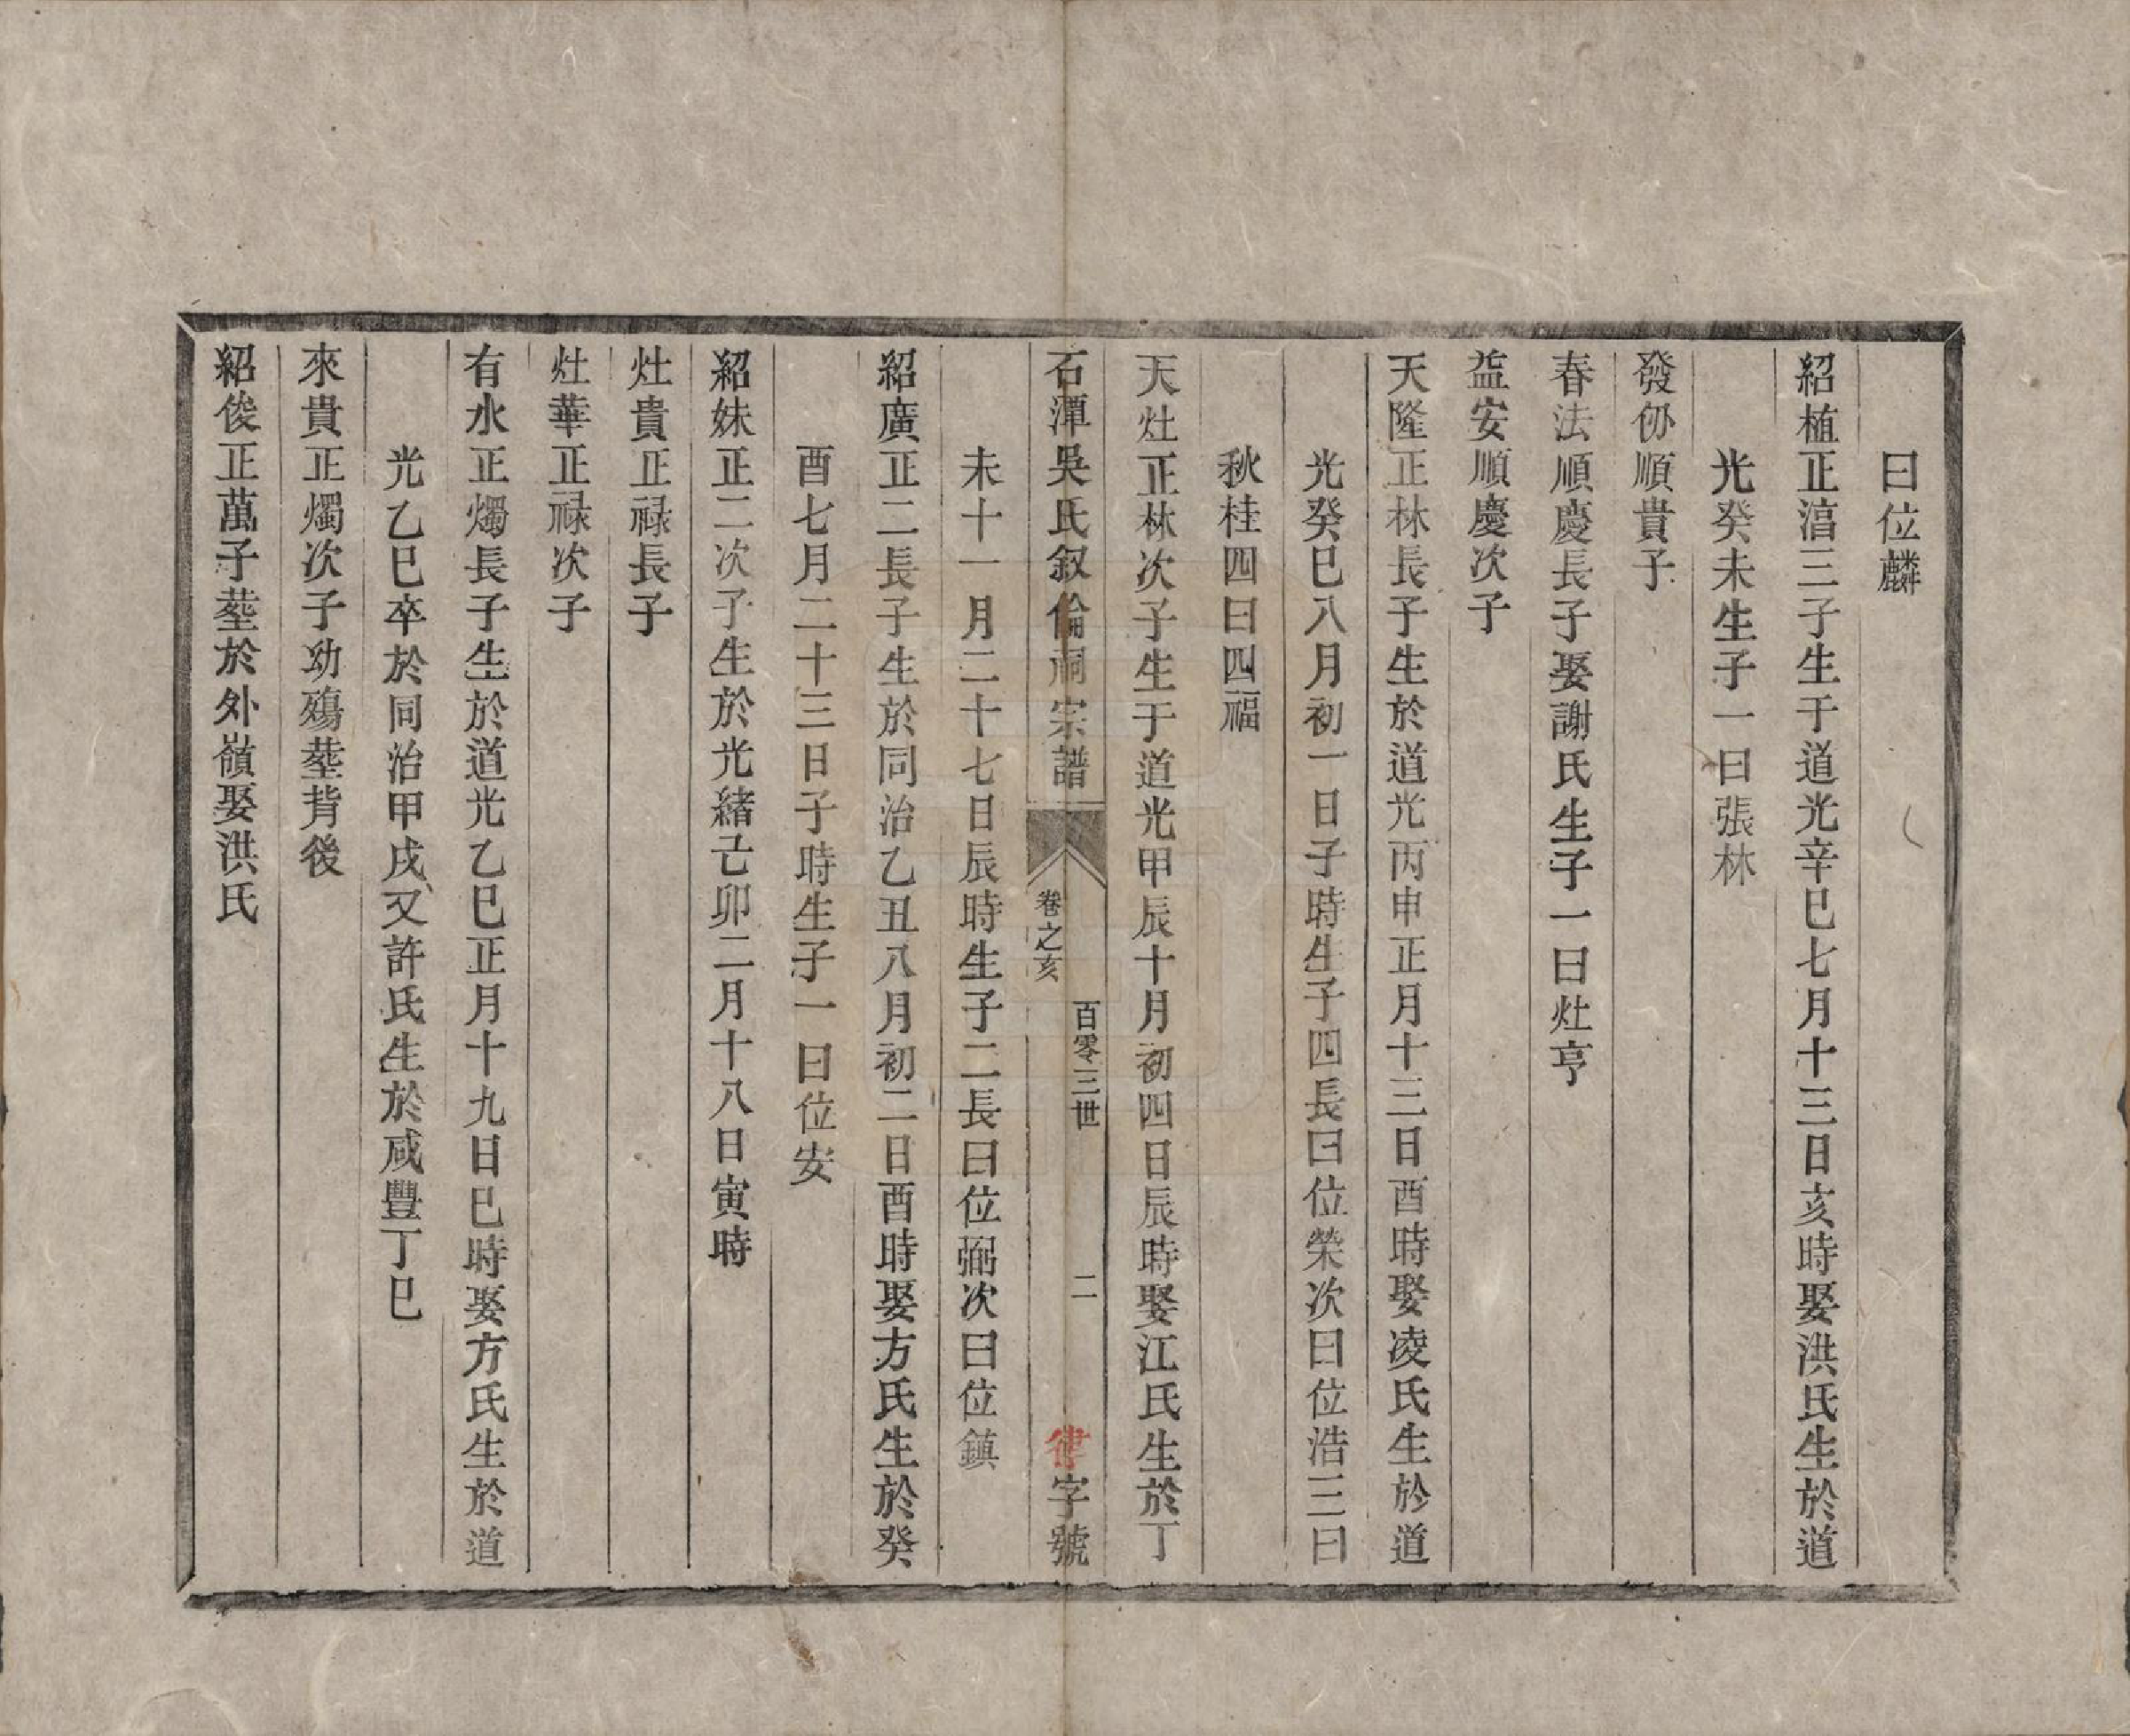 曰位麟
紹植正湻三子生于道光辛巳七月十三日亥時娶洪氏生於道
光癸未生子一曰張林
發仂順貴子
春法順慶長子娶謝氏生子一曰灶亨
益安順慶次子
天隆正林長子生於道光丙申正月十三日酉時娶凌氏生於道
光癸巳八月初一日子時生子四長曰位榮次曰位浩三曰
秋桂四曰四福
天灶正林次子生于道光甲辰十月初四日辰時娶江氏生於丁
石潭吳氏叙倫祠宗譜 卷之亥 百零三世 二 律字號
未十一月二十七日辰時生子二長曰位弼次曰位鎮
紹廣正二長子生於同治乙丑八月初二日酉時娶方氏生於癸
酉七月二十三日子時生子一曰位安
紹妹正二次子生於光緒己卯二月十八日寅時
灶貴正祿長子
灶華正祿次子
有水正燭長子生於道光乙巳正月十九日巳時娶方氏生於道
光乙巳卒於同治甲戌又許氏生於咸豐丁巳
來貴正燭次子幼殤塟背後
紹俊正萬子塟於外嶺娶洪氏